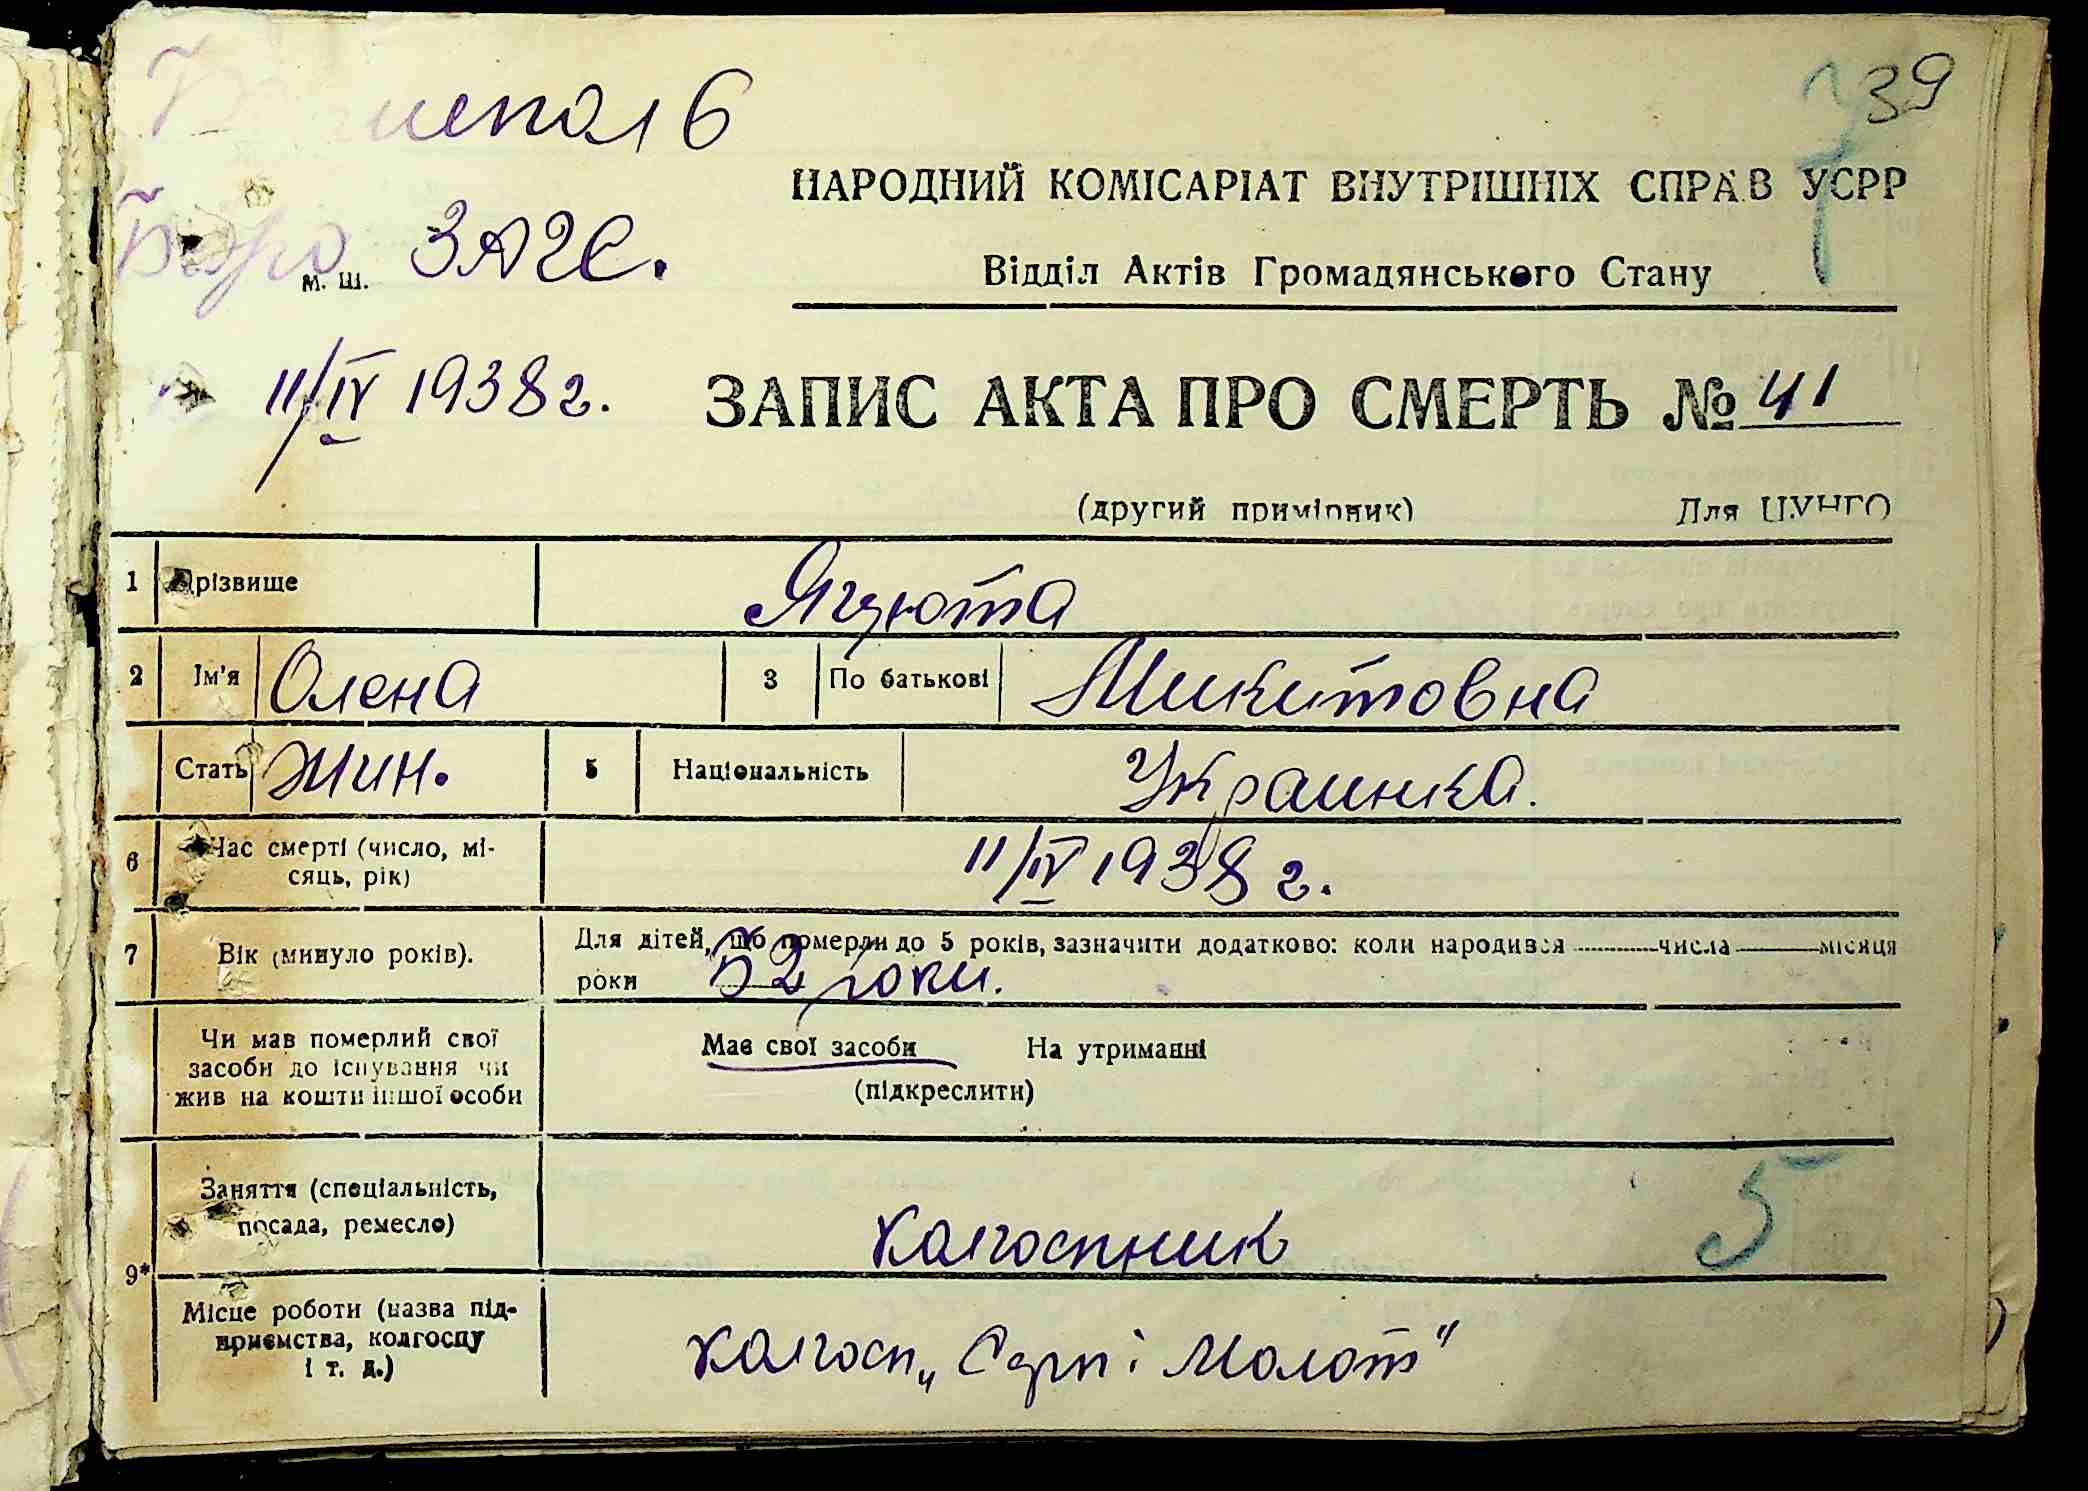 Бориспол 6
39
НАРОДНИЙ КОМІСАРІАТ ВНУТРІШНІХ СПРАВ УСРР
Бюро ЗАГС.
м. ш.
Відділ Актів Громадянського Стану
11/IV 1938 г.
ЗАПИС АКТА ПРО СМЕРТЬ № 41
(другий примірник) Для ЦУНГО
1 Прізвище Ягнюта
2 Ім'я Олена 3 По батькові Микитовна
Стать Жин. 5 Національність Украинка.
6 Час смерті (число, мі-
сяць, рік) 11/IV 1938 г.
7 Вік (минуло років). Для дітей, що померли до 5 років, зазначити додатково: коли народився числа місяця
роки 52 роки.
Чи мав померлий свої
засоби до існування чи
жив на кошти іншої особи
Має свої засоби На утриманні
(підкреслити)
Заняття (спеціальність,
посада, ремесло) Колгоспник
5
9*
Місце роботи (назва під-
приємства, колгоспу
і т. д.) Колгосп „Серп і Молот"